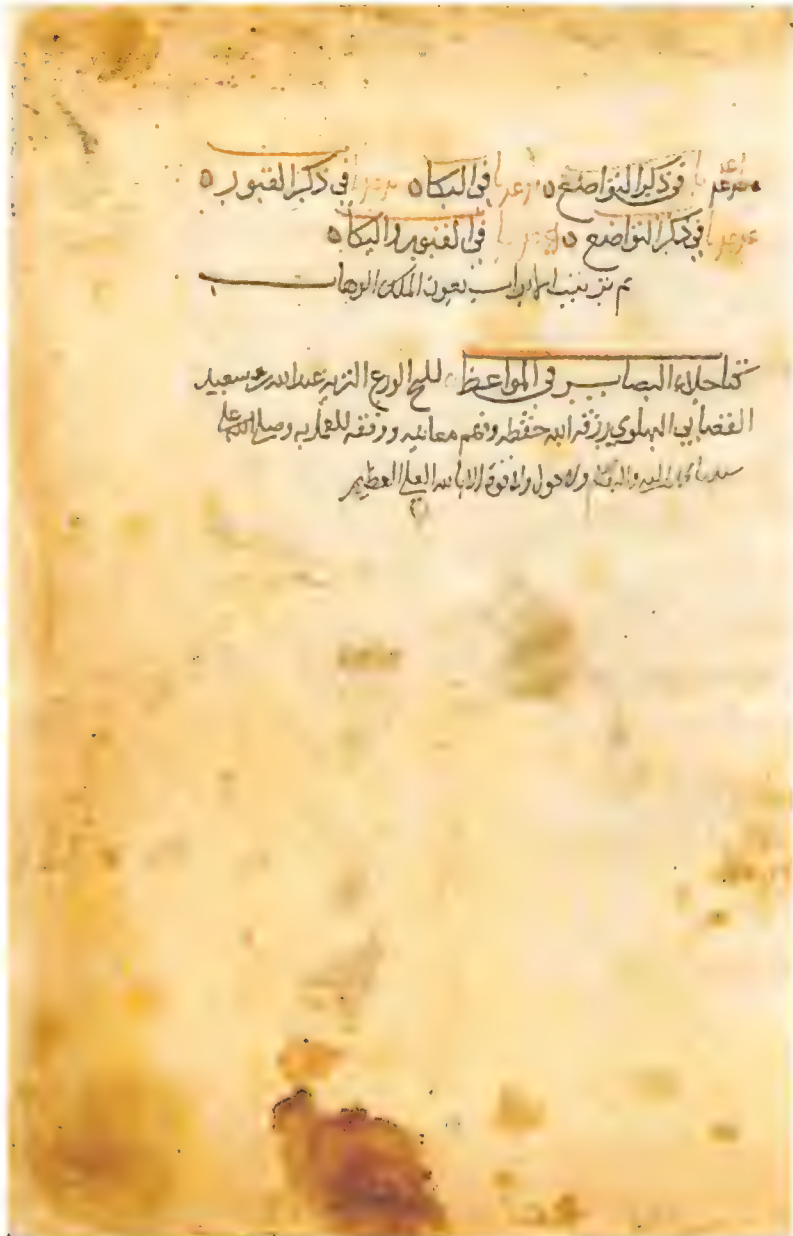 في ذكر التواضع ه في البكا ه في ذكر القبور ه
في ذكر التواضع ه في القبور والبكا ه
تم ترتيب الابواب بعون الملك الوهاب
كتاب جلاء البصاير في المواعظ للشيخ الورع النزيه عبد الله بن سعيد
رزقه الله حفظه وفهم معانيه ووفقه للعمل به وصلى الله على
سيدنا محمد النبي واله وسلم ولا حول ولا قوة الا بالله العلي العظيم